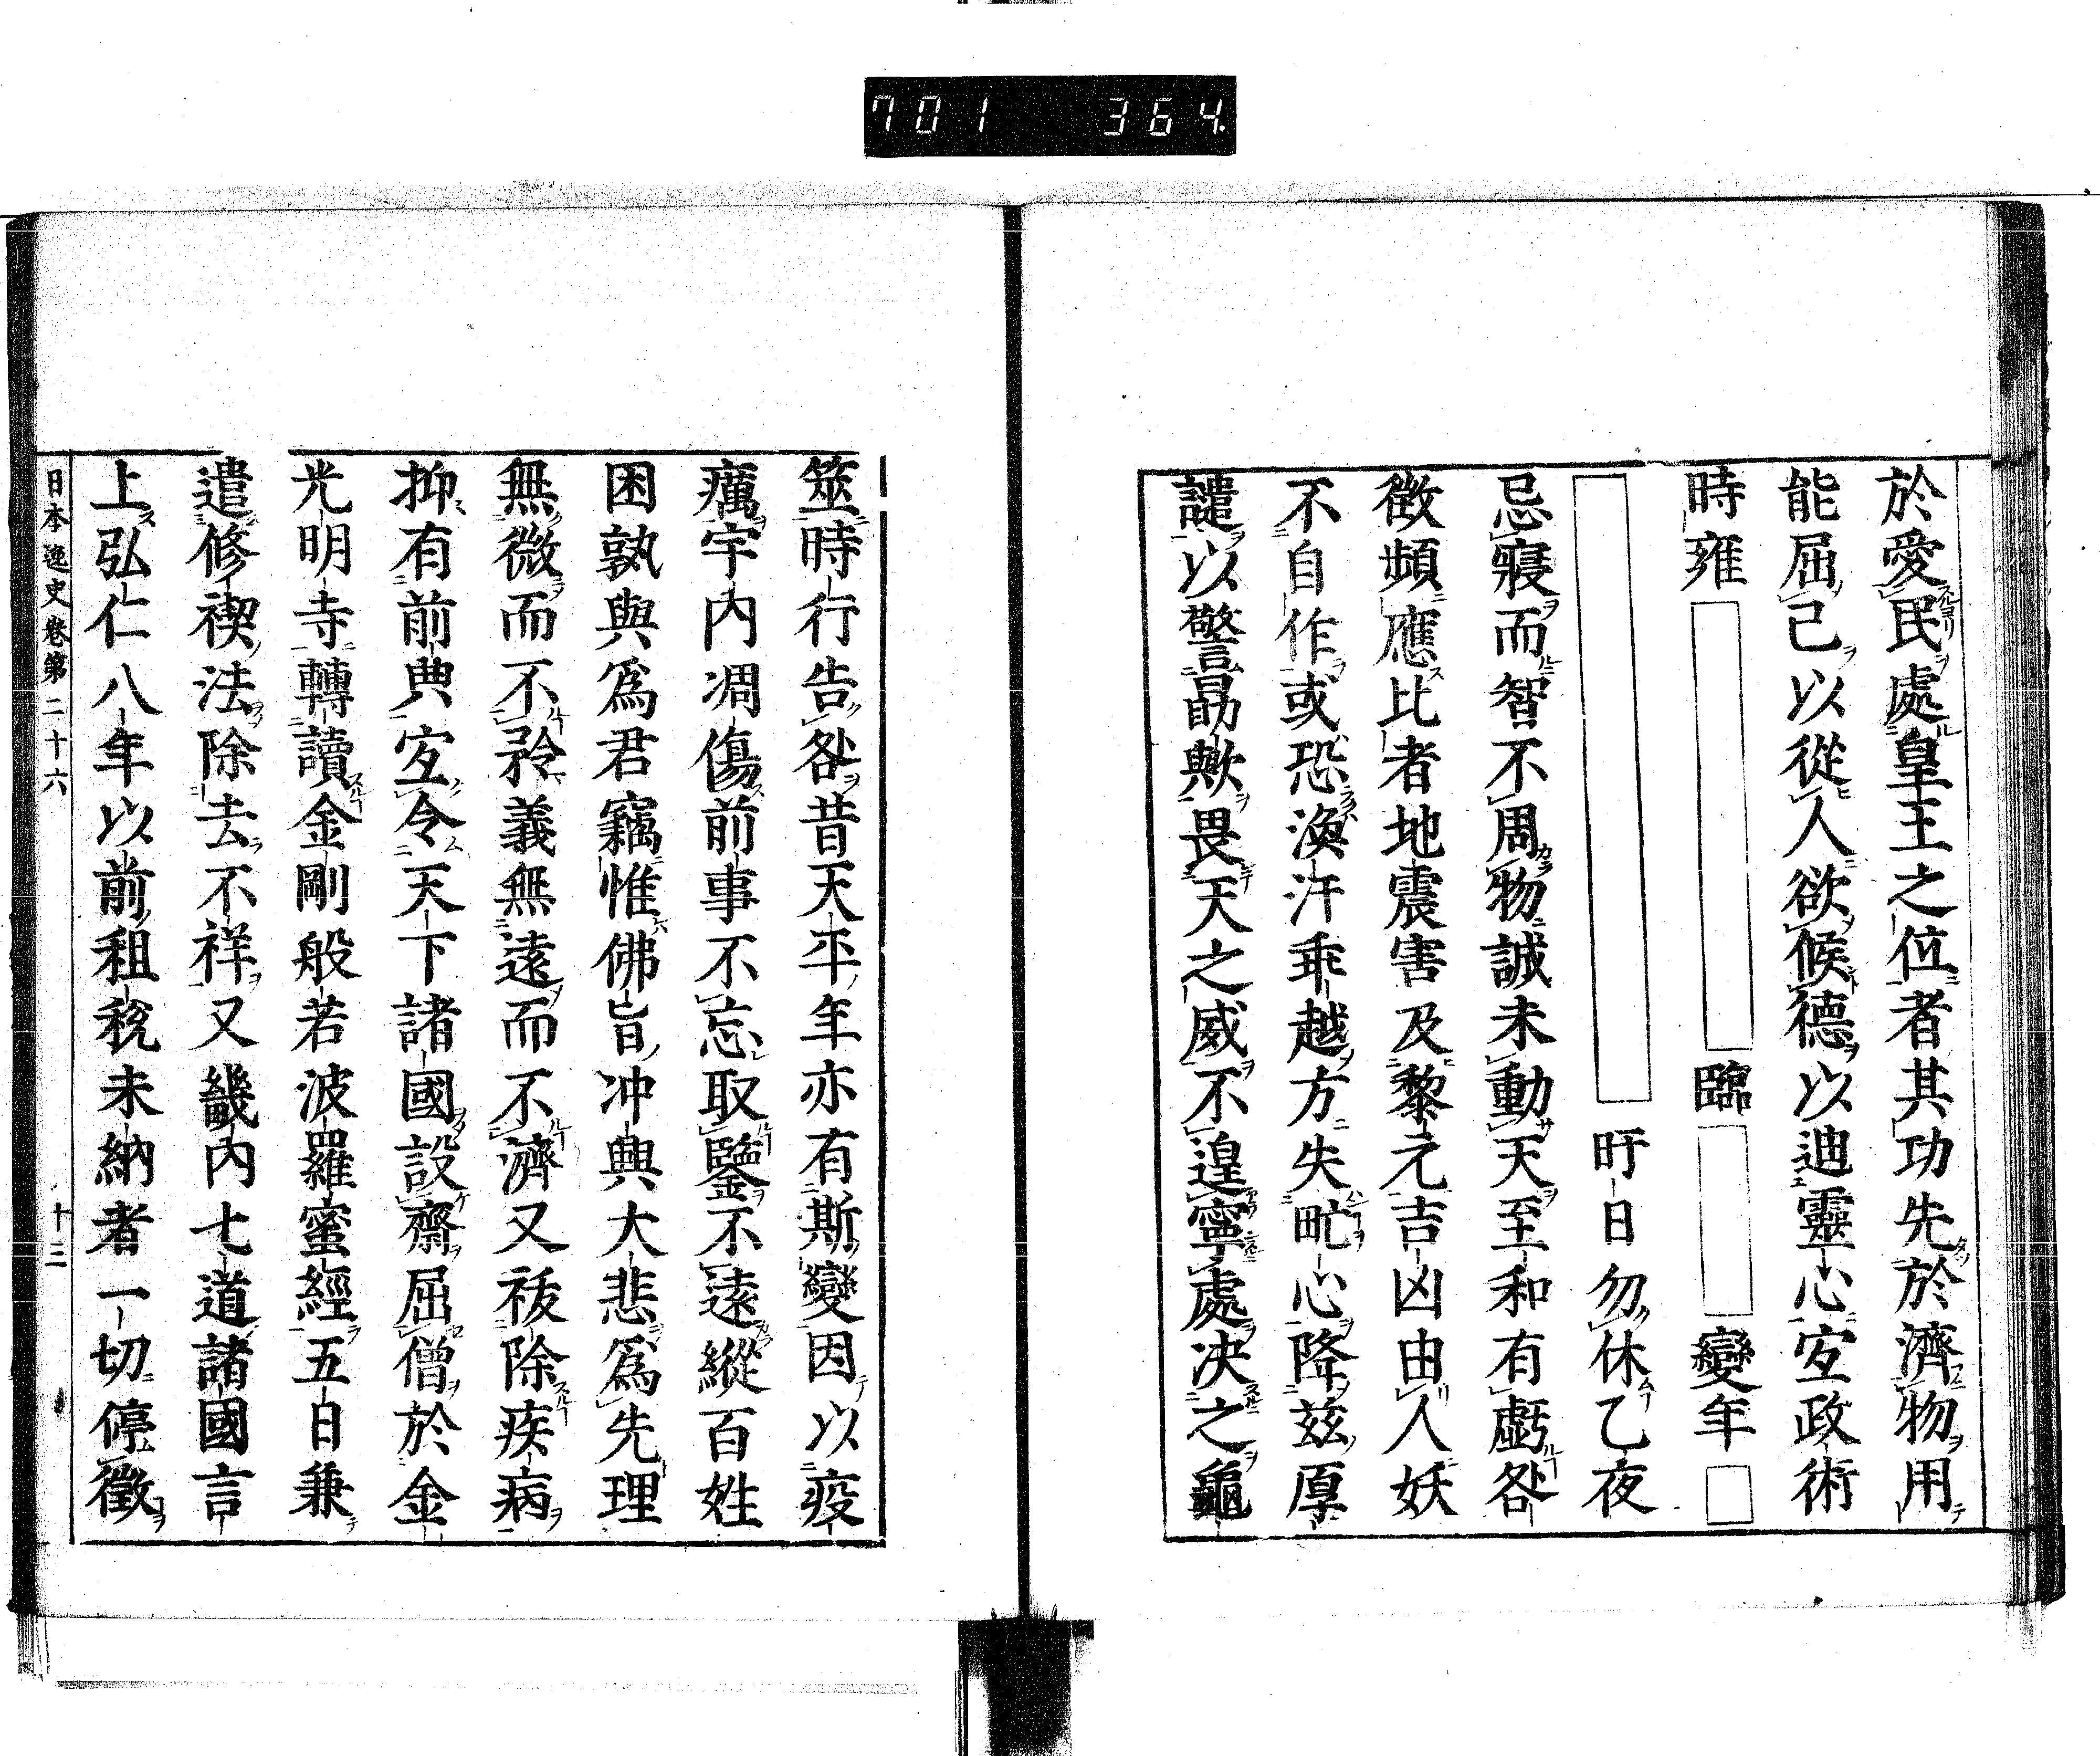 701 364
於愛民處皇王之位者其功先於濟物用
能屈己以從人欲候德以迪靈心定政術
時雍 臨 變年
旰日勿休乙夜
忌寢而智不周物誠未動天至和有虧咎
徴頻應比者地震害及黎元吉凶由人妖
不自作或恐渙汗乖越方失甿心降茲厚
譴以警勗歟畏天之威不遑寧處決之龜
筮時行告咎昔天平年亦有斯變因以疫
癘宇內凋傷前事不忘取鑒不遠縱百姓
困孰與爲君竊惟佛旨冲典大悲爲先理
無微而不矜義無遠而不濟又祓除疾病
抑有前典宜令天下諸國設齋屈僧於金
光明寺轉讀金剛般若波羅蜜經五日兼
遣修禊法除去不祥又畿內七道諸國言
上弘仁八年以前租稅未納者一切停徵
日本逸史卷第二十六 十二